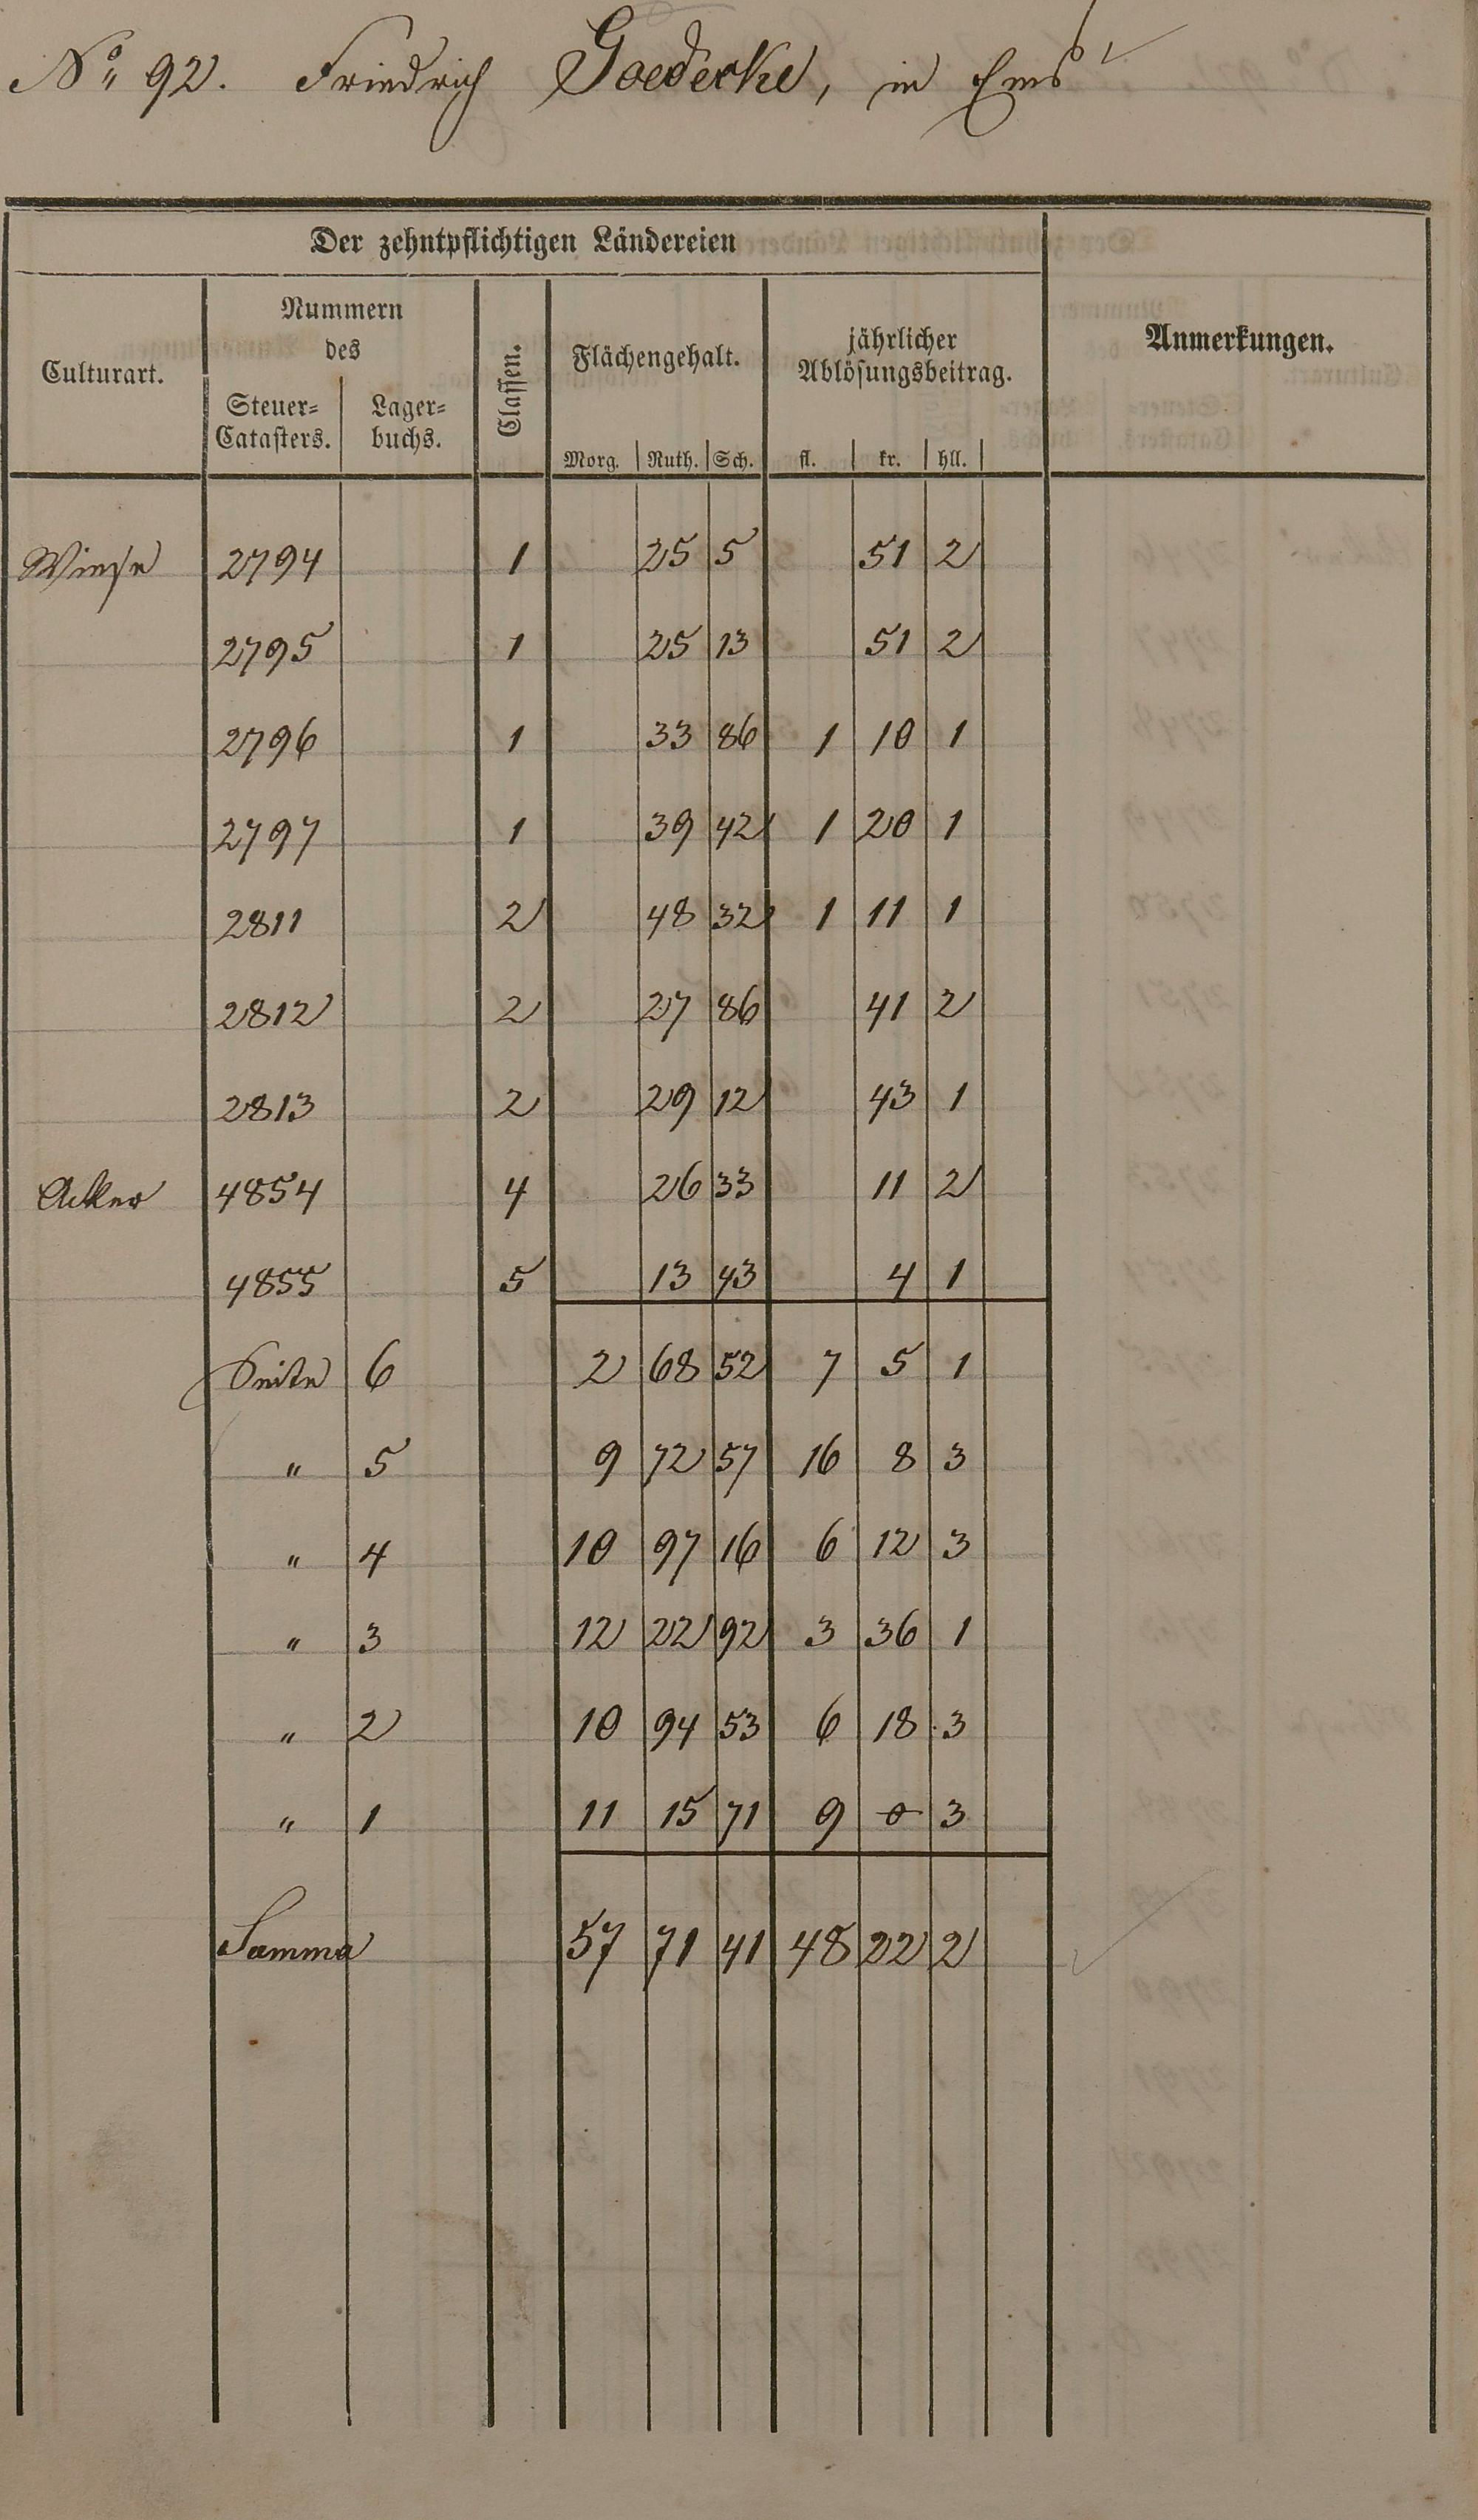 No 92. Friedrich Goedecke, in Ems
Der zehntpflichtigen Ländereien
Culturart.
Nummern
des
Steuer=
Catasters.
Lager=
buchs.
Classen.
Flächengehalt.
Morg. Ruth. Sch.
jährlicher
Ablösungsbeitrag.
fl. kr. hll.
Anmerkungen.
Wiese 2794 1 25 5 51 2
2795 1 25 13 51 2
2796 1 33 86 1 10 1
2797 1 39 42 1 20 1
2811 2 48 32 1 11 1
2812 2 27 86 41 2
2813 2 29 12 43 1
Acker 4854 4 26 33 11 2
4855 5 13 43 4 1
Seite 6 2 68 52 7 5 1
" 5 9 72 57 16 8 3
" 4 10 97 16 6 12 3
" 3 12 22 92 3 36 1
" 2 10 94 53 6 18 3
" 1 11 15 71 9 0 3
Summa 57 71 41 48 22 2